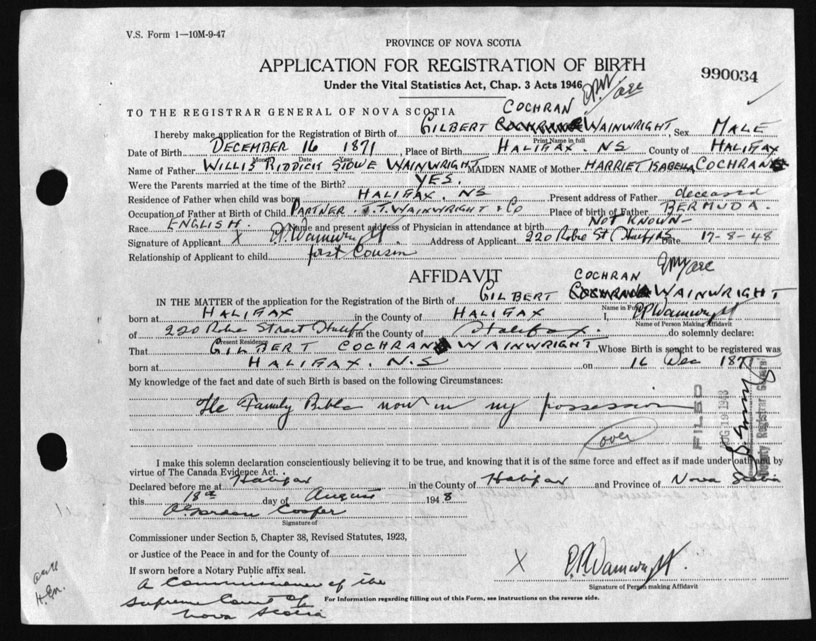 V.S. Form 1—10M-9-47
PROVINCE OF NOVA SCOTIA
APPLICATION FOR REGISTRATION OF BIRTH
Under the Vital Statistics Act, Chap. 3 Acts 1946
990034
TO THE REGISTRAR GENERAL OF NOVA SCOTIA
COCHRAN
I hereby make application for the Registration of Birth of GILBERT WAINWRIGHT, Sex MALE
Print Name in full
Date of Birth DECEMBER 16 1871, Place of Birth HALIFAX, NS County of HALIFAX
Month Date
Name of Father WILLIS RIDDICK STOWE WAINWRIGHT MAIDEN NAME of Mother HARRIET ISABELLA COCHRAN
Were the Parents married at the time of the Birth? YES.
Residence of Father when child was born HALIFAX, NS Present address of Father deceased
Occupation of Father at Birth of Child PARTNER J.T. WAINWRIGHT & Co Place of birth of Father BERMUDA.
Race ENGLISH. Name and present address of Physician in attendance at birth NOT KNOWN—
Signature of Applicant X Wainwright. Address of Applicant 220 Robie St Date 17-8-48
Relationship of Applicant to child first Cousin
AFFIDAVIT
COCHRAN
IN THE MATTER of the application for the Registration of the Birth of GILBERT WAINWRIGHT
born at HALIFAX in the County of HALIFAX I, Wainwright
Name of Person Making Affidavit
of 220 Robie Street Halifax in the County of Halifax. do solemnly declare:
Present Residence
That GILBERT COCHRAN WAINWRIGHT Whose Birth is sought to be registered was
born at HALIFAX. N.S on 16 Dec 1871
My knowledge of the fact and date of such Birth is based on the following Circumstances:
The Family Bible now in my possession
(over)
FILED
AUG 19 1948
Deputy Registrar General
I make this solemn declaration conscientiously believing it to be true, and knowing that it is of the same force and effect as if made under oath and by
virtue of The Canada Evidence Act.
Declared before me at Halifax in the County of Halifax and Province of Nova Scotia
this 18th day of August 1948
Gordon Cooper
Signature of
Commissioner under Section 5, Chapter 38, Revised Statutes, 1923,
or Justice of the Peace in and for the County of
If sworn before a Notary Public affix seal.
X Wainwright.
Signature of Person making Affidavit
A Commissioner of the
Supreme Court of
Nova Scotia
For Information regarding filling out of this Form, see instructions on the reverse side.